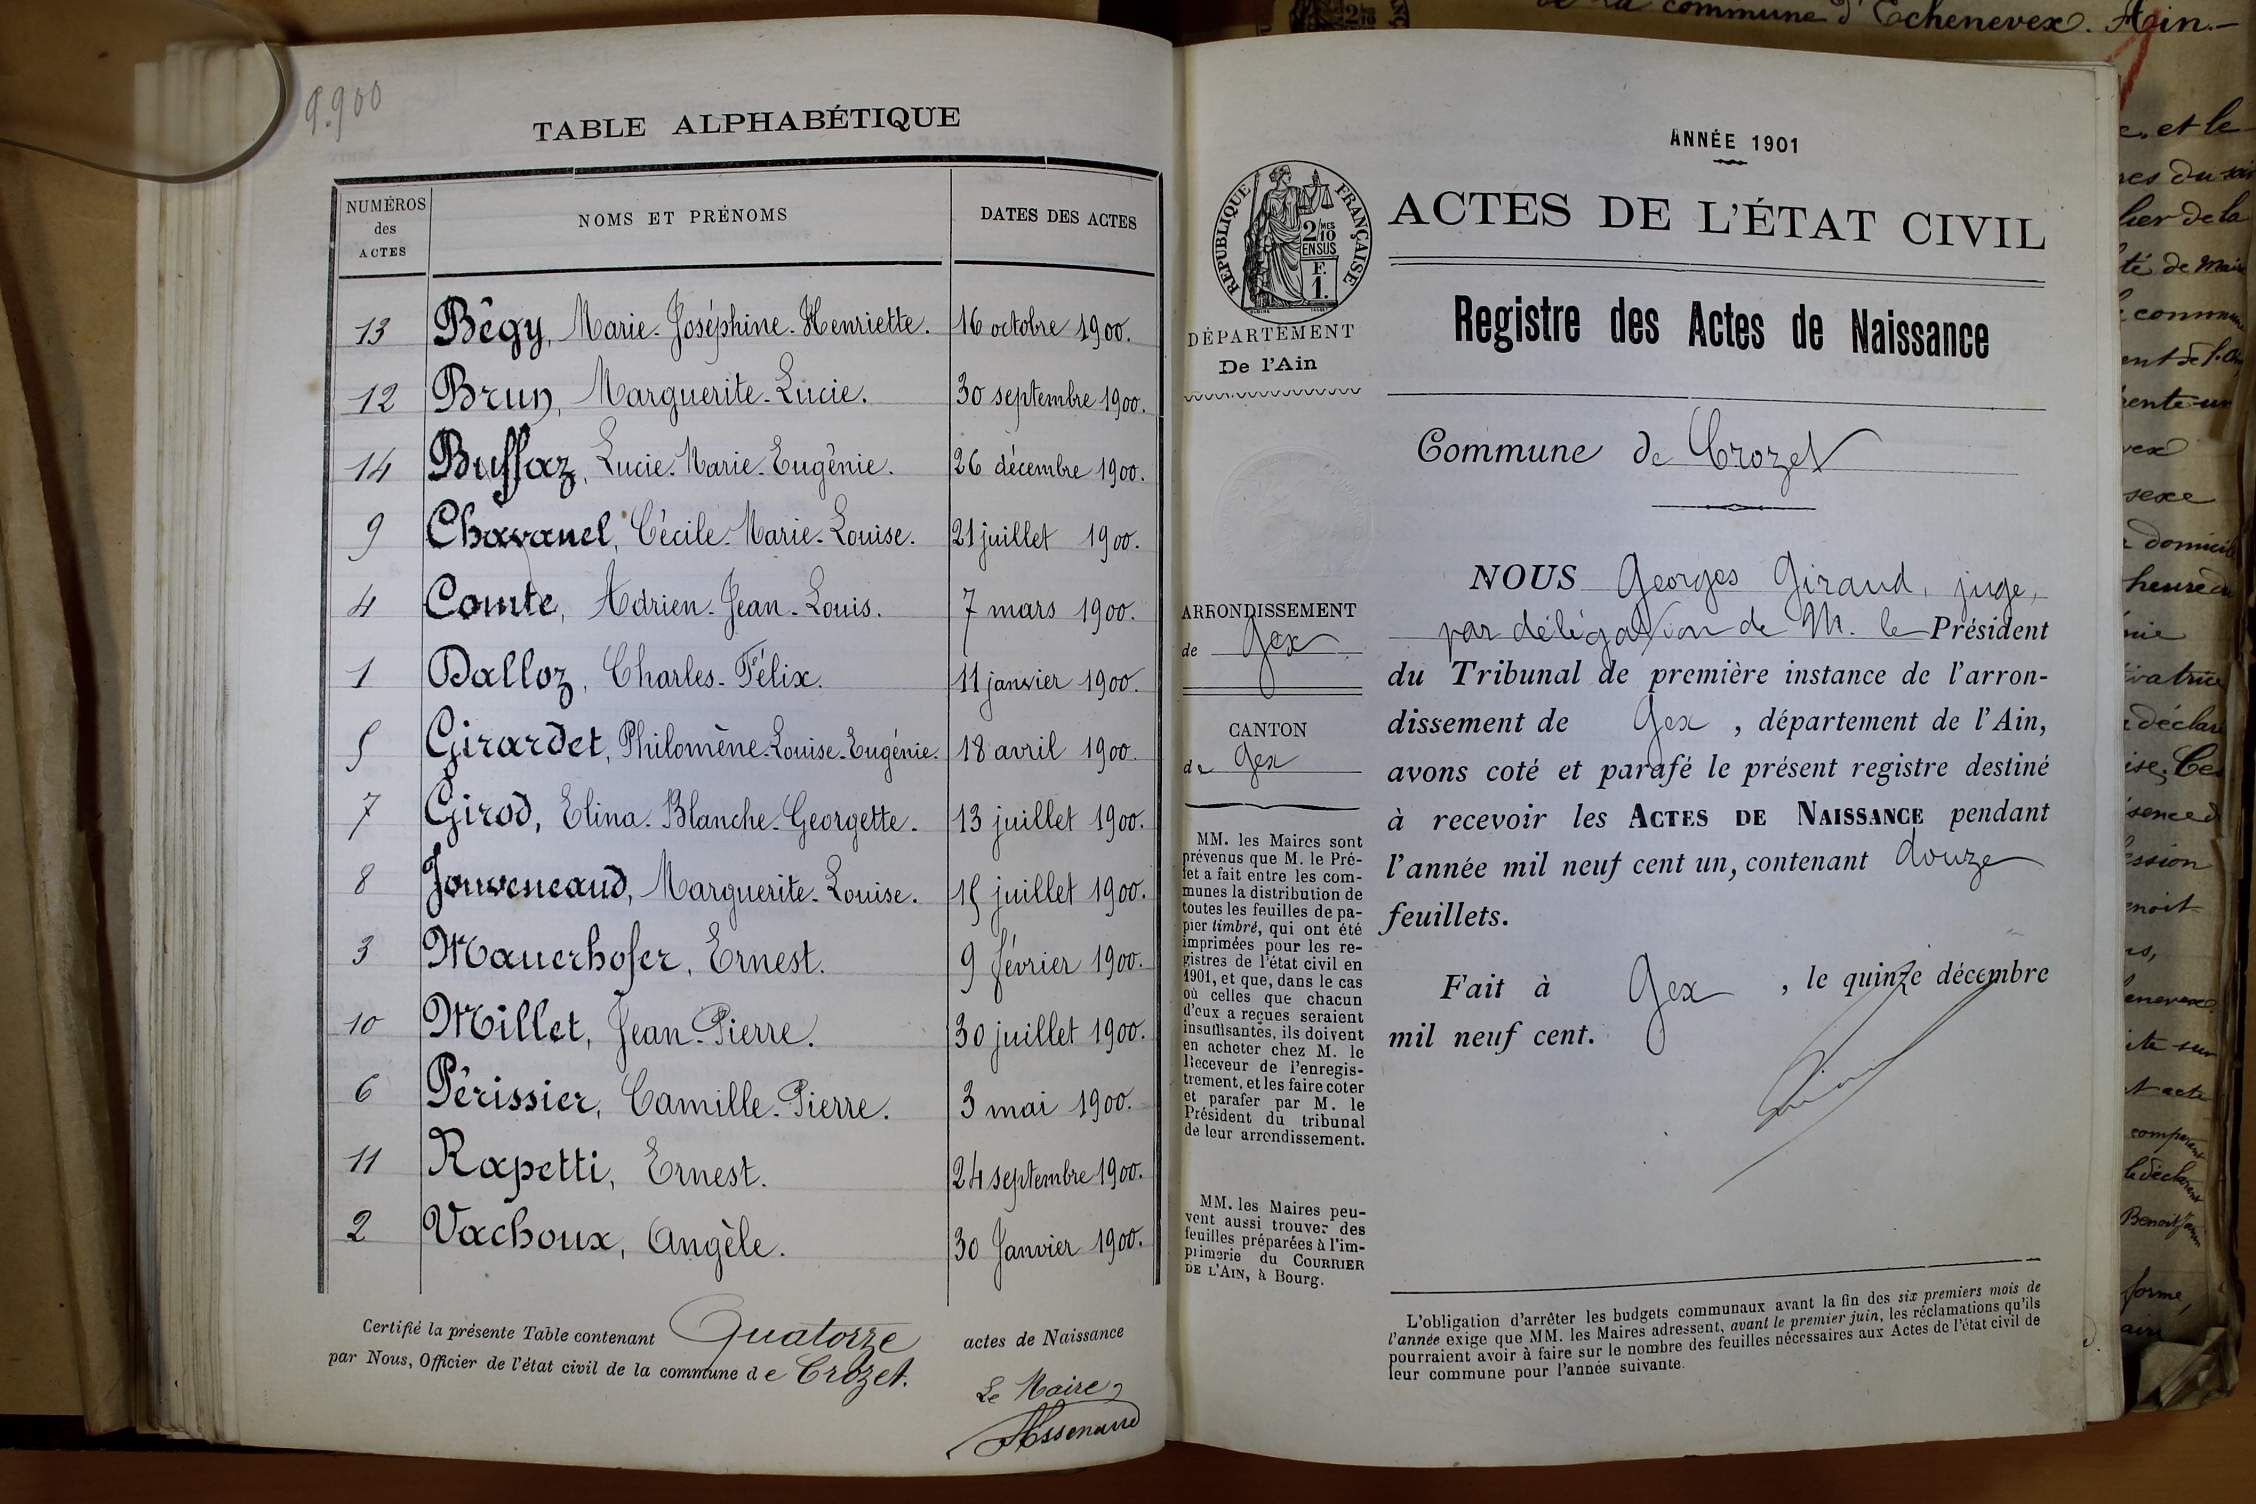 de la commune d'Echenevex. Ain.
9.900
TABLE ALPHABÉTIQUE
NUMÉROS des ACTES | NOMS ET PRÉNOMS | DATES DES ACTES
13 Bégy, Marie-Joséphine-Henriette. 16 octobre 1900.
12 Brun, Marguerite-Lucie. 30 septembre 1900.
14 Buffaz, Lucie-Marie-Eugénie. 26 décembre 1900.
9 Chavanel, Cécile-Marie-Louise. 21 juillet 1900.
4 Comte, Adrien-Jean-Louis. 7 mars 1900.
1 Dalloz, Charles-Félix. 11 janvier 1900.
5 Girardet, Philomène-Louise-Eugénie. 18 avril 1900.
7 Girod, Elina-Blanche-Georgette. 13 juillet 1900.
8 Jouveneaud, Marguerite-Louise. 15 juillet 1900.
3 Mauerhofer, Ernest. 9 février 1900.
10 Millet, Jean-Pierre. 30 juillet 1900.
6 Périssier, Camille-Pierre. 3 mai 1900.
11 Rapetti, Ernest. 24 septembre 1900.
2 Vachoux, Angèle. 30 Janvier 1900.
Certifié la présente Table contenant Quatorze actes de Naissance
par Nous, Officier de l'état civil de la commune de Crozet.
Le Maire,
RÉPUBLIQUE FRANÇAISE
2/10 MES
EN SUS
F.
1.
DÉPARTEMENT
De l'Ain
ARRONDISSEMENT
de Gex
CANTON
de Gex
MM. les Maires sont
prévenus que M. le Pré-
fet a fait entre les com-
munes la distribution de
toutes les feuilles de pa-
pier timbré, qui ont été
imprimées pour les re-
gistres de l'état civil en
1901, et que, dans le cas
où celles que chacun
d'eux a reçues seraient
insuffisantes, ils doivent
en acheter chez M. le
Receveur de l'enregis-
trement, et les faire coter
et parafer par M. le
Président du tribunal
de leur arrondissement.
MM. les Maires peu-
vent aussi trouver des
feuilles préparées à l'im-
primerie du COURRIER
DE L'AIN, à Bourg.
ANNÉE 1901
ACTES DE L'ÉTAT CIVIL
Registre des Actes de Naissance
Commune de Crozet
NOUS Georges Giraud, juge,
par délégation de M. le Président
du Tribunal de première instance de l'arron-
dissement de Gex, département de l'Ain,
avons coté et parafé le présent registre destiné
à recevoir les ACTES DE NAISSANCE pendant
l'année mil neuf cent un, contenant douze
feuillets.
Fait à Gex, le quinze décembre
mil neuf cent.
L'obligation d'arrêter les budgets communaux avant la fin des six premiers mois de
l'année exige que MM. les Maires adressent, avant le premier juin, les réclamations qu'ils
pourraient avoir à faire sur le nombre des feuilles nécessaires aux Actes de l'état civil de
leur commune pour l'année suivante.
et le
de la
té de Maire
sexe
domicile
heure du